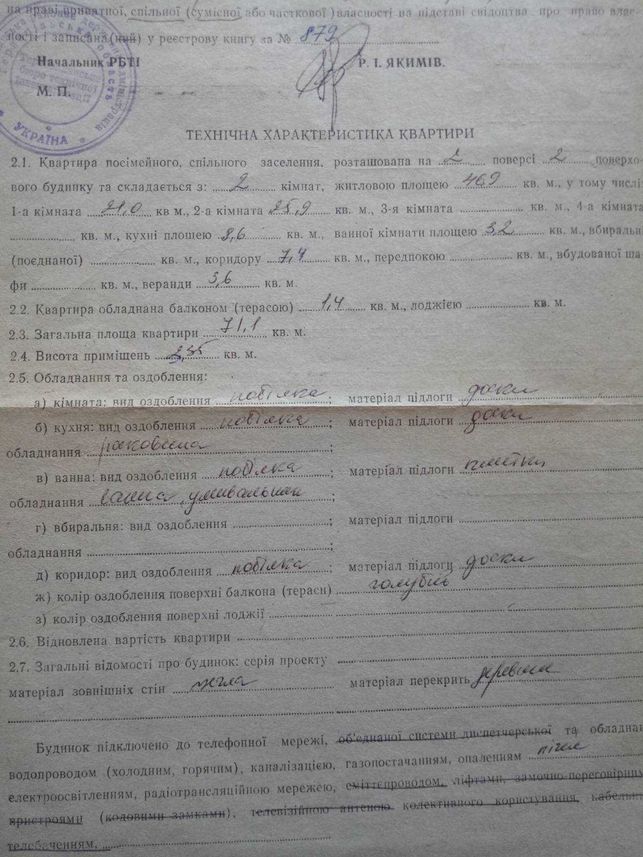 на праві приватної, спільної (сумісної або часткової) власності на підставі свідоцтва про право влас-
ності і записана(ний) у реєстрову книгу за № 879
Начальник РБТІ Р. І. ЯКИМІВ.
М. П.
УКРАЇНА
ТЕХНІЧНА ХАРАКТЕРИСТИКА КВАРТИРИ
2.1. Квартира посімейного, спільного заселення, розташована на 2 поверсі 2 поверхо-
вого будинку та складається з: 2 кімнат, житловою площею 46,9 кв. м., у тому числі:
1-а кімната 21,0 кв м., 2-а кімната 25,9 кв. м., 3-я кімната кв. м., 4-а кімната
кв. м., кухні площею 8,6 кв. м., ванної кімнати площею 3,2 кв. м., вбиральні
(поєднаної) кв. м., коридору 7,4 кв. м., передпокою кв. м., вбудованої ша-
фи кв. м., веранди 3,6 кв. м.
2.2. Квартира обладнана балконом (терасою) 1,4 кв. м., лоджією кв. м.
2.3. Загальна площа квартири 71,1 кв. м.
2.4. Висота приміщень кв. м.
2.5. Обладнання та оздоблення:
а) кімната: вид оздоблення побілка; матеріал підлоги доски
б) кухня: вид оздоблення побілка; матеріал підлоги доски
обладнання раковина;
в) ванна: вид оздоблення побілка; матеріал підлоги плитки
обладнання ванна, умивальник;
г) вбиральня: вид оздоблення; матеріал підлоги
обладнання;
д) коридор: вид оздоблення побілка; матеріал підлоги доски
ж) колір оздоблення поверхні балкона (тераси) голубий
з) колір оздоблення поверхні лоджії
2.6. Відновлена вартість квартири
2.7. Загальні відомості про будинок: серія проекту
матеріал зовнішніх стін цегла матеріал перекрить деревяні
Будинок підключено до телефонної мережі, об'єднаної системи диспетчерської та обладнан
водопроводом (холодним, горячим), каналізацією, газопостачанням, опаленням пічне
електроосвітленням, радіотрансляційною мережею, сміттєпроводом, ліфтами, замочно-переговорним
пристроями (кодовими замками), телевізійною антеною колективного користування, кабельн
телебаченням,